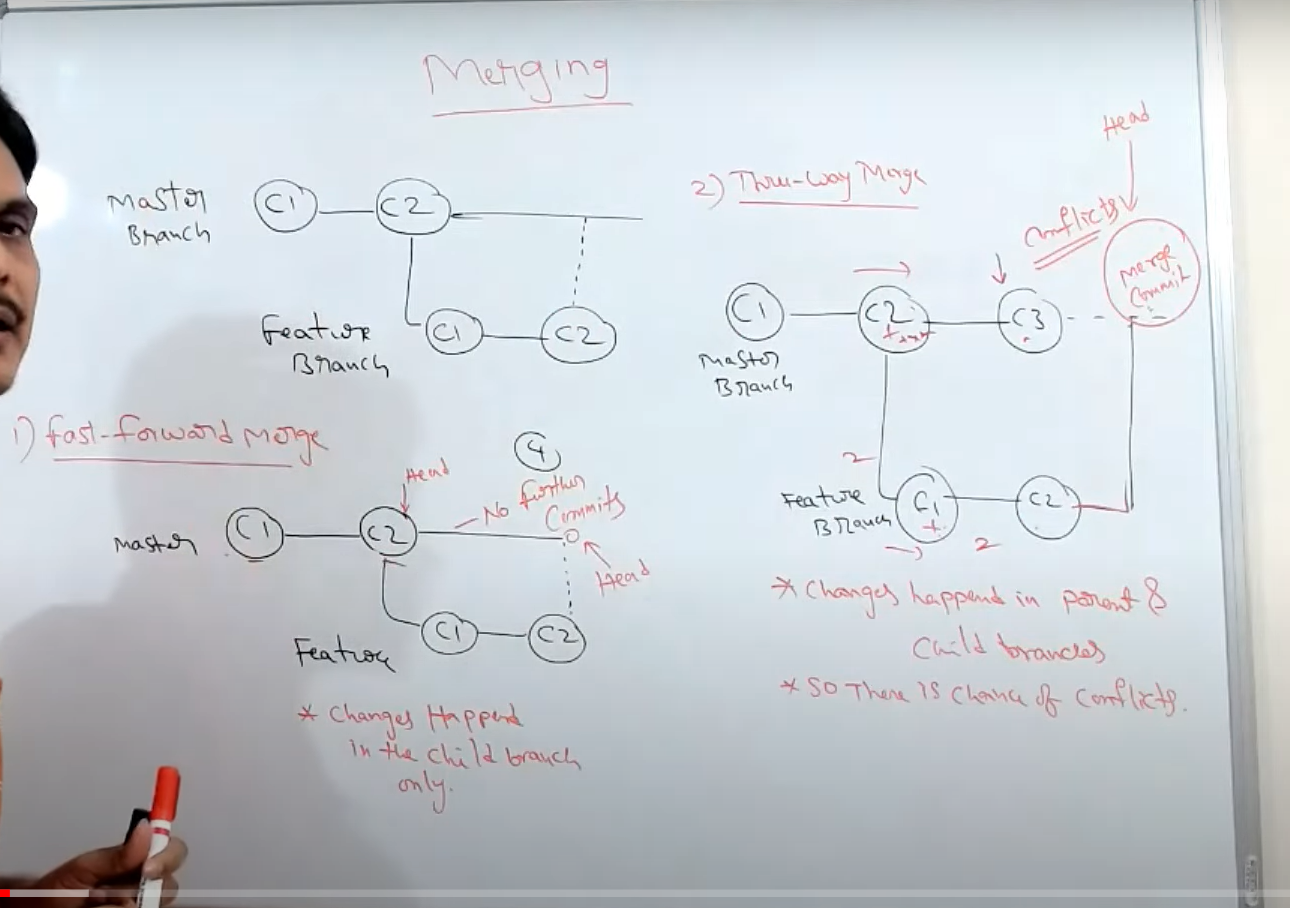 Merging
Master
Branch
C1
C2
Feature
Branch
C1
C2
1) Fast-Forward Merge
4
Head
No further
Commits
Master
C1
C2
Head
Feature
C1
C2
* Changes Happend
in the child branch
only.
2) Three-Way Merge
Head
Conflicts
Merge
Commit
C1
C2
C3
Master
Branch
2
Feature
Branch
C1
C2
2
* Changes happend in parent &
Child branches
* So There is chance of conflicts.